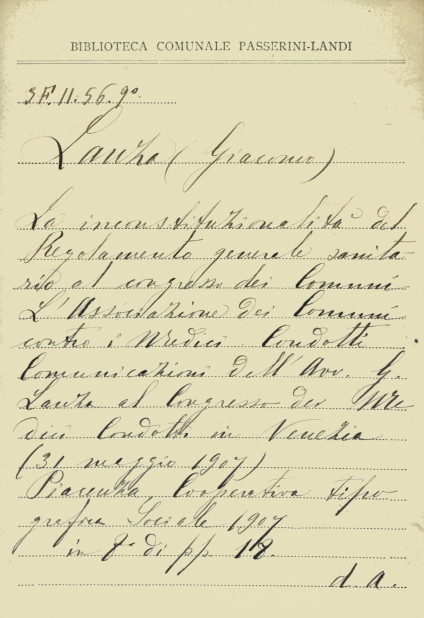 BIBLIOTECA COMUNALE PASSERINI-LANDI
3F. II. 56. 9º
Lanza (Giacomo)
La inconstituzionalità del
Regolamento generale sanita-
rio al congresso dei Comuni-
L'Associazione dei Comuni
contro i Medici Condotti
Comunicazioni dell'Avv. G.
Lanza al Congresso dei Me
dici Condotti in Venezia
(31 maggio 1907)
Piacenza, Cooperativa tipo
grafica Sociale 1907
in 8º di pp 18
d. a.